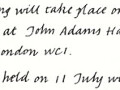 ng will take place on
at John Adams Ha
ondon WC1.
held on 11 July w